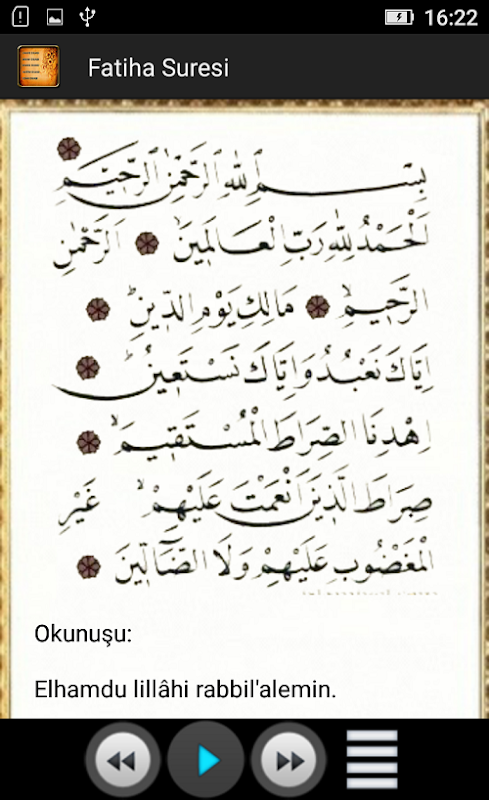 16:22
Fatiha Suresi
بِسْمِ اللهِ الرَّحْمٰنِ الرَّحِيمِ
اَلْحَمْدُ لِلّٰهِ رَبِّ الْعَالَمِينَ اَلرَّحْمٰنِ
الرَّحِيمِ مَالِكِ يَوْمِ الدِّينِ
اِيَّاكَ نَعْبُدُ وَاِيَّاكَ نَسْتَعِينُ
اِهْدِنَا الصِّرَاطَ الْمُسْتَقِيمَ
صِرَاطَ الَّذِينَ اَنْعَمْتَ عَلَيْهِمْ غَيْرِ
الْمَغْضُوبِ عَلَيْهِمْ وَلَا الضَّالِّينَ
Okunuşu:
Elhamdu lillâhi rabbil'alemin.